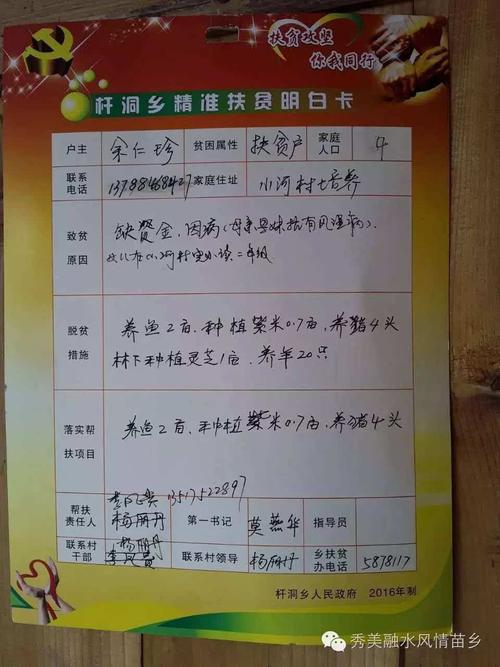 扶贫攻坚
你我同行
杆洞乡精准扶贫明白卡
户主 余仁珍 贫困属性 扶贫户 家庭人口 4
联系电话 家庭住址 小河村七培养
致贫原因 缺资金，因病
女儿在小河村完小读二年级
脱贫措施 养鱼2亩，种植紫米0.7亩，养猪4头
林下种植灵芝1亩，养羊20只
落实帮扶项目 养鱼2亩，种植紫米0.7亩，养猪4头
帮扶责任人 13517522897
杨丽丹 第一书记 莫燕华 指导员
联系村干部 杨丽丹 联系村领导 杨丽丹 乡扶贫办电话 5878117
杆洞乡人民政府 2016年制
秀美融水风情苗乡